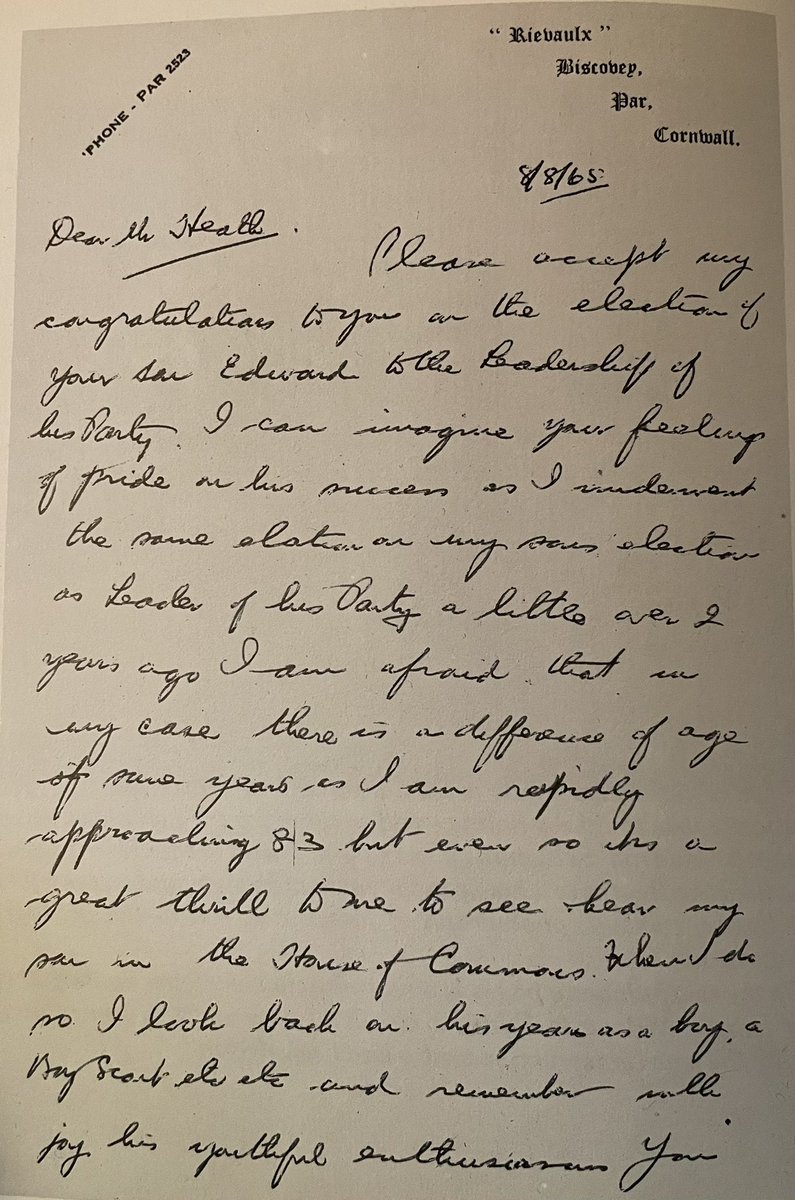 'PHONE - PAR 2523
" Rievaulx "
Biscovey,
Par,
Cornwall.
8/8/65
Dear Mr Heath.
Please accept my
congratulations to you on the election of
your son Edward to the Leadership of
his Party. I can imagine your feelings
of pride on his success as I underwent
the same elation on my sons election
as Leader of his Party a little over 2
years ago I am afraid that in
my case there is a difference of age
of some years as I am rapidly
approaching 83 but even so its a
great thrill to me to see hear my
son in the House of Commons. When I do
so I look back on his years as a boy, a
Boy Scout etc etc and remember with
joy his youthful enthusiasms You